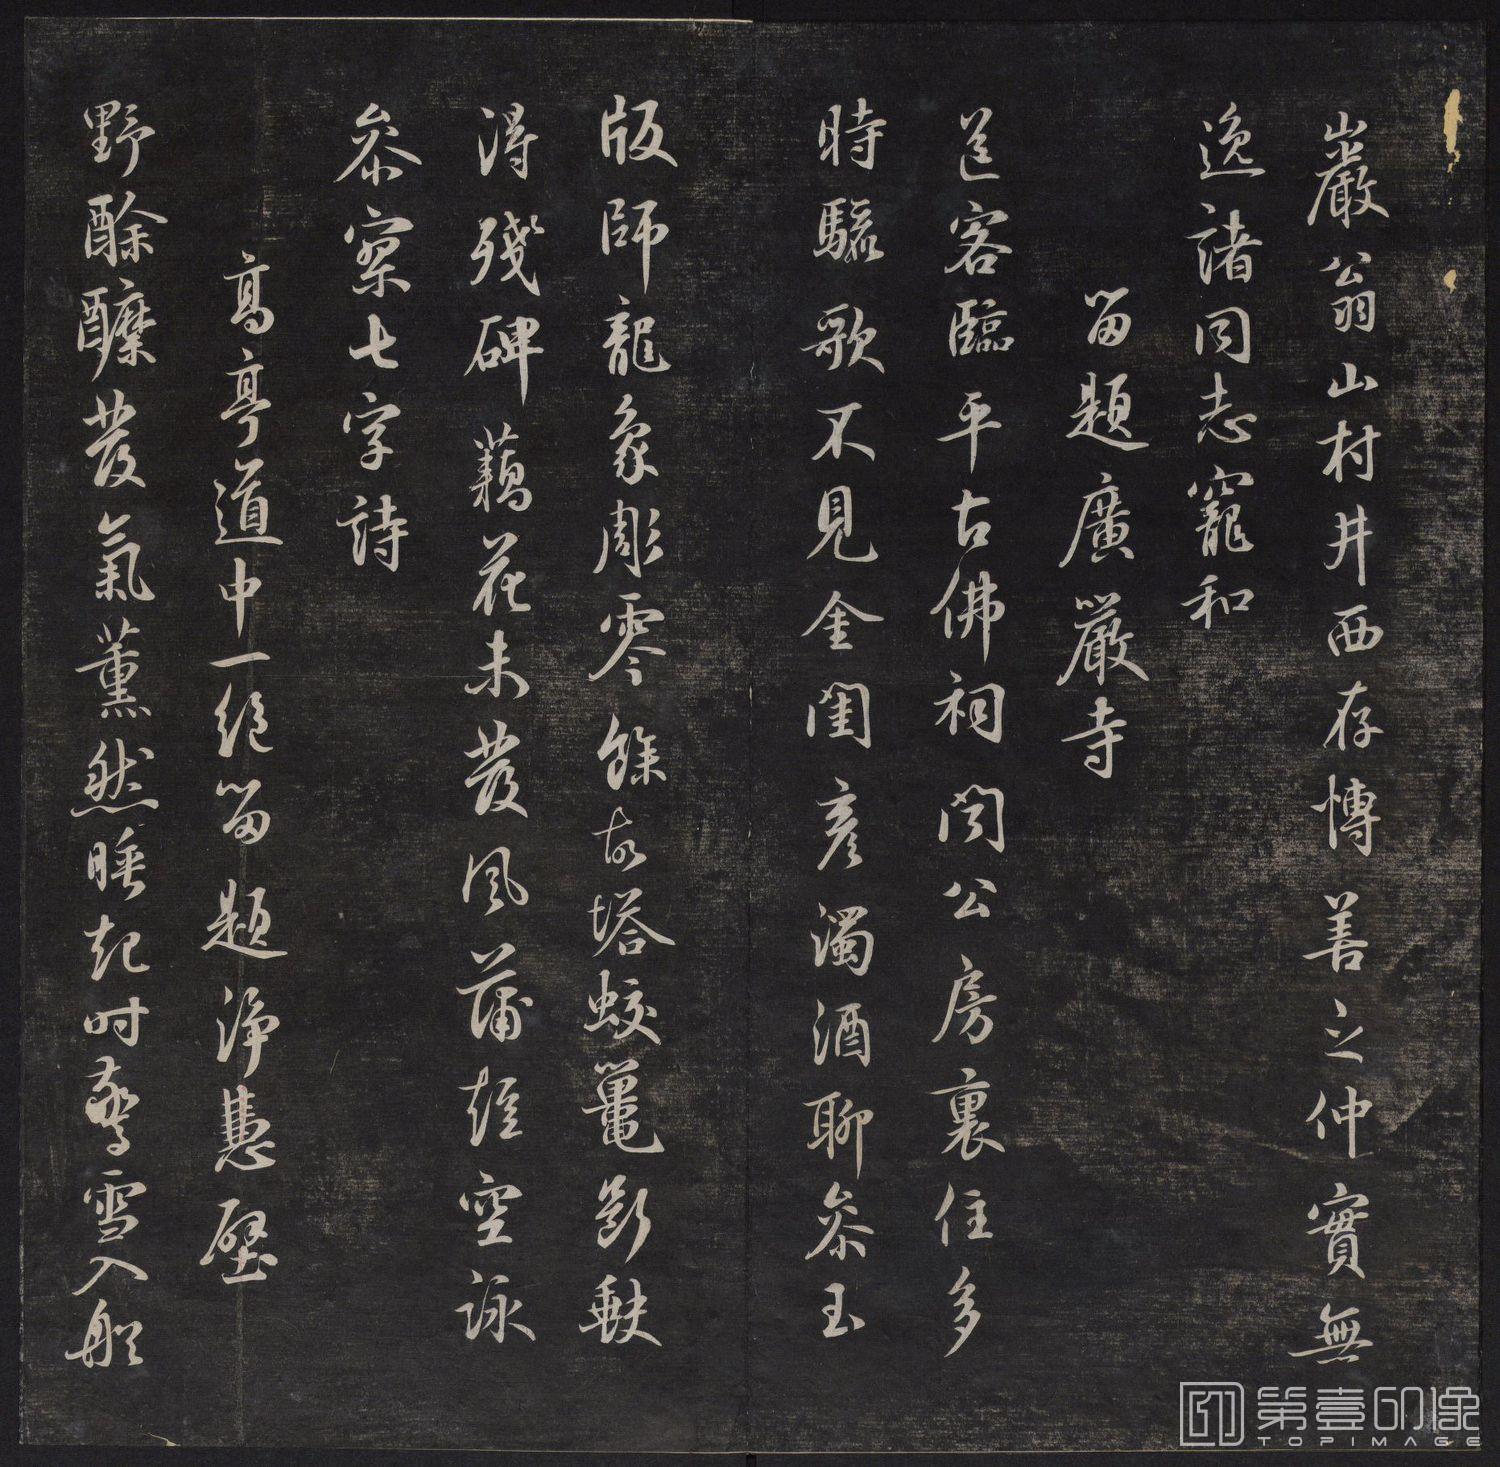 巖翁山村井西存博善之仲實無
逸諸同志寵和
留題廣嚴寺
送客臨平古佛祠閔公房裏住多
時驪歌不見金閨彥濁酒聊參玉
版師龍象彫零餘古塔蛟鼉剝蝕
得殘碑藕花未發風蒲短空詠
參寥七字詩
高亭道中一絕留題淨慧壁
野酴醾發氣薰然睡起時驚雪入船
第壹印像
TOPIMAGE